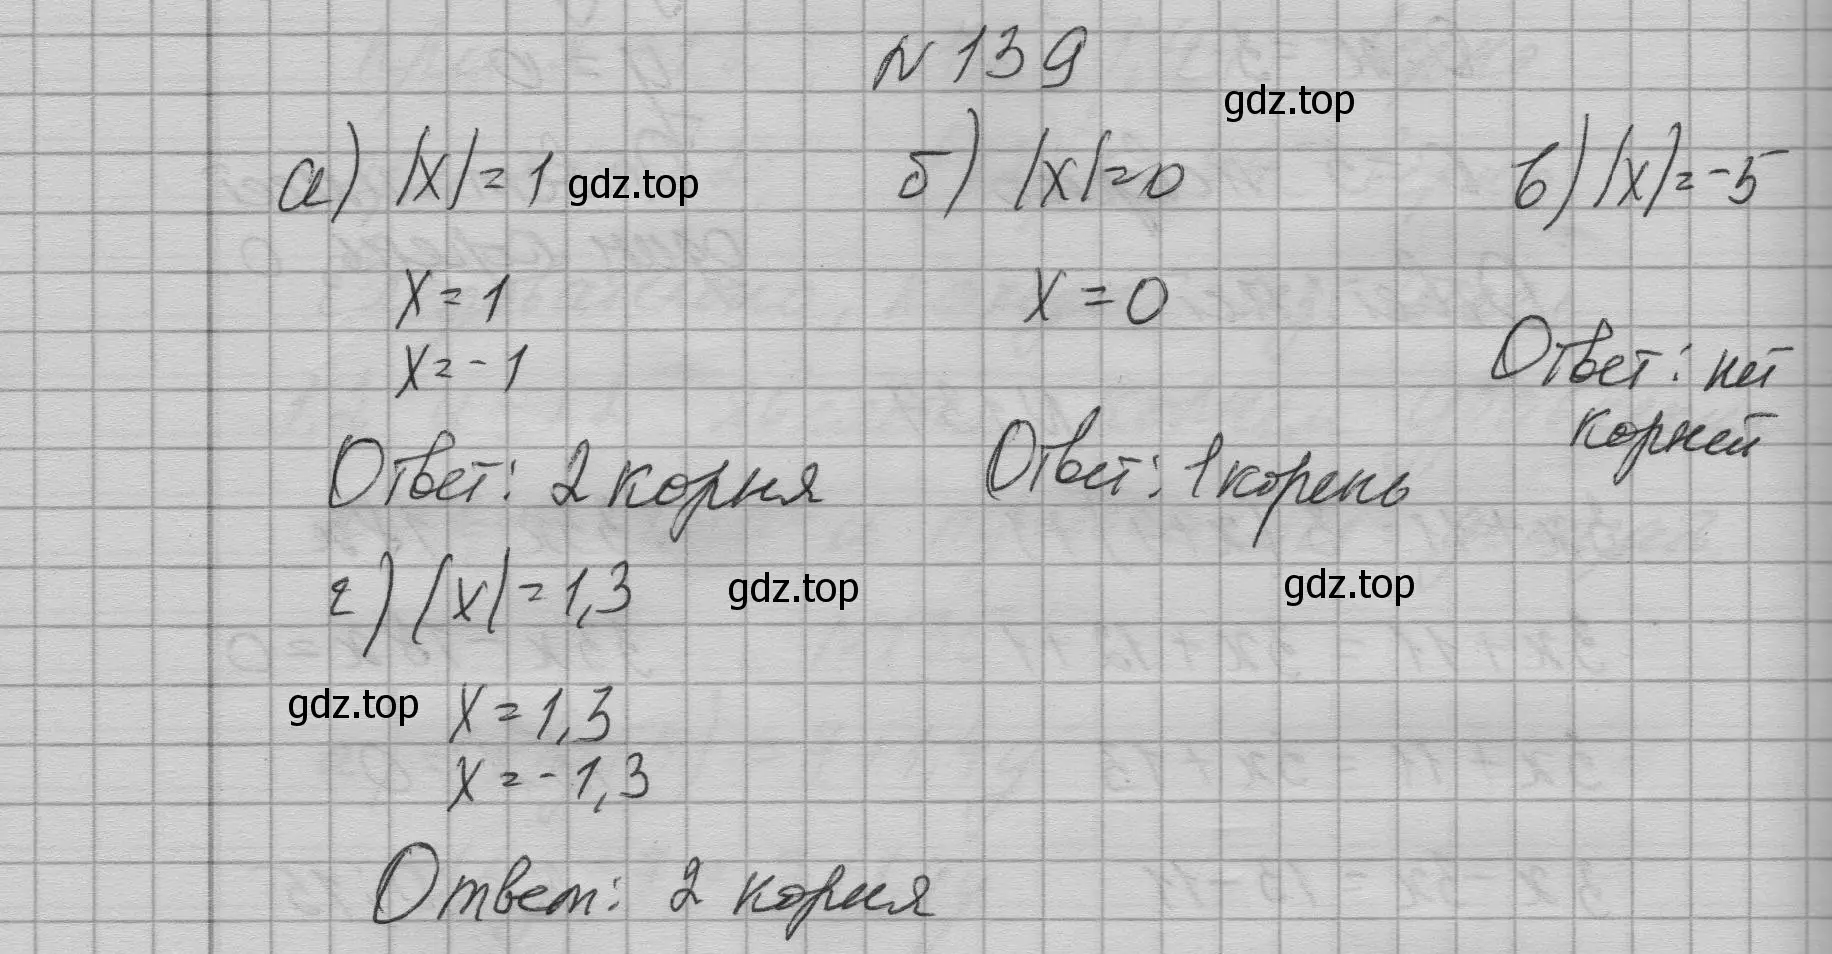 № 139
gdz.top
а) |x| = 1
gdz.top
x = 1
x = -1
Ответ: 2 корня
б) |x| = 0
x = 0
Ответ: 1 корень
в) |x| = -5
Ответ: нет
корней
г) |x| = 1,3
gdz.top
gdz.top
gdz.top
x = 1,3
x = -1,3
Ответ: 2 корня